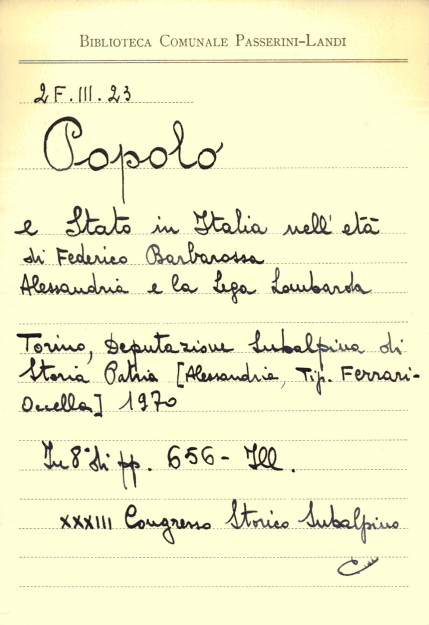 BIBLIOTECA COMUNALE PASSERINI-LANDI
2F.III.23
Popolo
e Stato in Italia nell'età
di Federico Barbarossa
Alessandria e la Lega Lombarda
Torino, Deputazione Subalpina di
Storia Patria [Alessandria, Tip. Ferrari-
Occella] 1970
In 8° di pp. 656 - Ill.
XXXIII Congresso Storico Subalpino